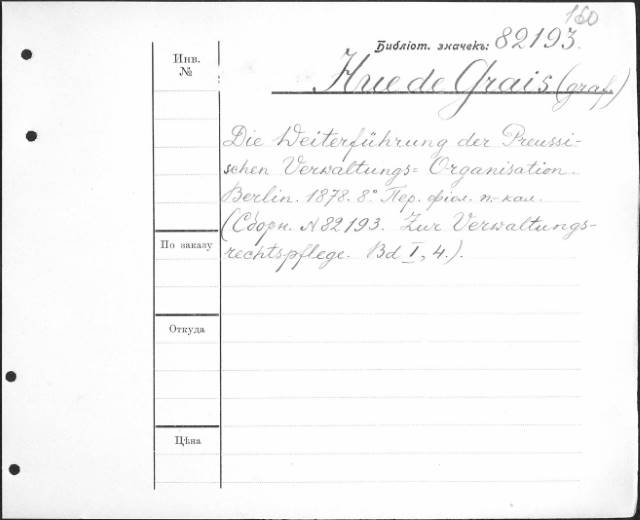 160
Библіот. значекъ: 82193.
Инв.
№
Hue de Grais (graf.)
Die Weiterführung der Preussi-
schen Verwaltungs= Organisation.
Berlin. 1878. 8.° Пер. фіол. п.-кал.
(Сборн. № 82193. Zur Verwaltungs-
rechtspflege. Bd I, 4.).
По заказу
Откуда
Цѣна